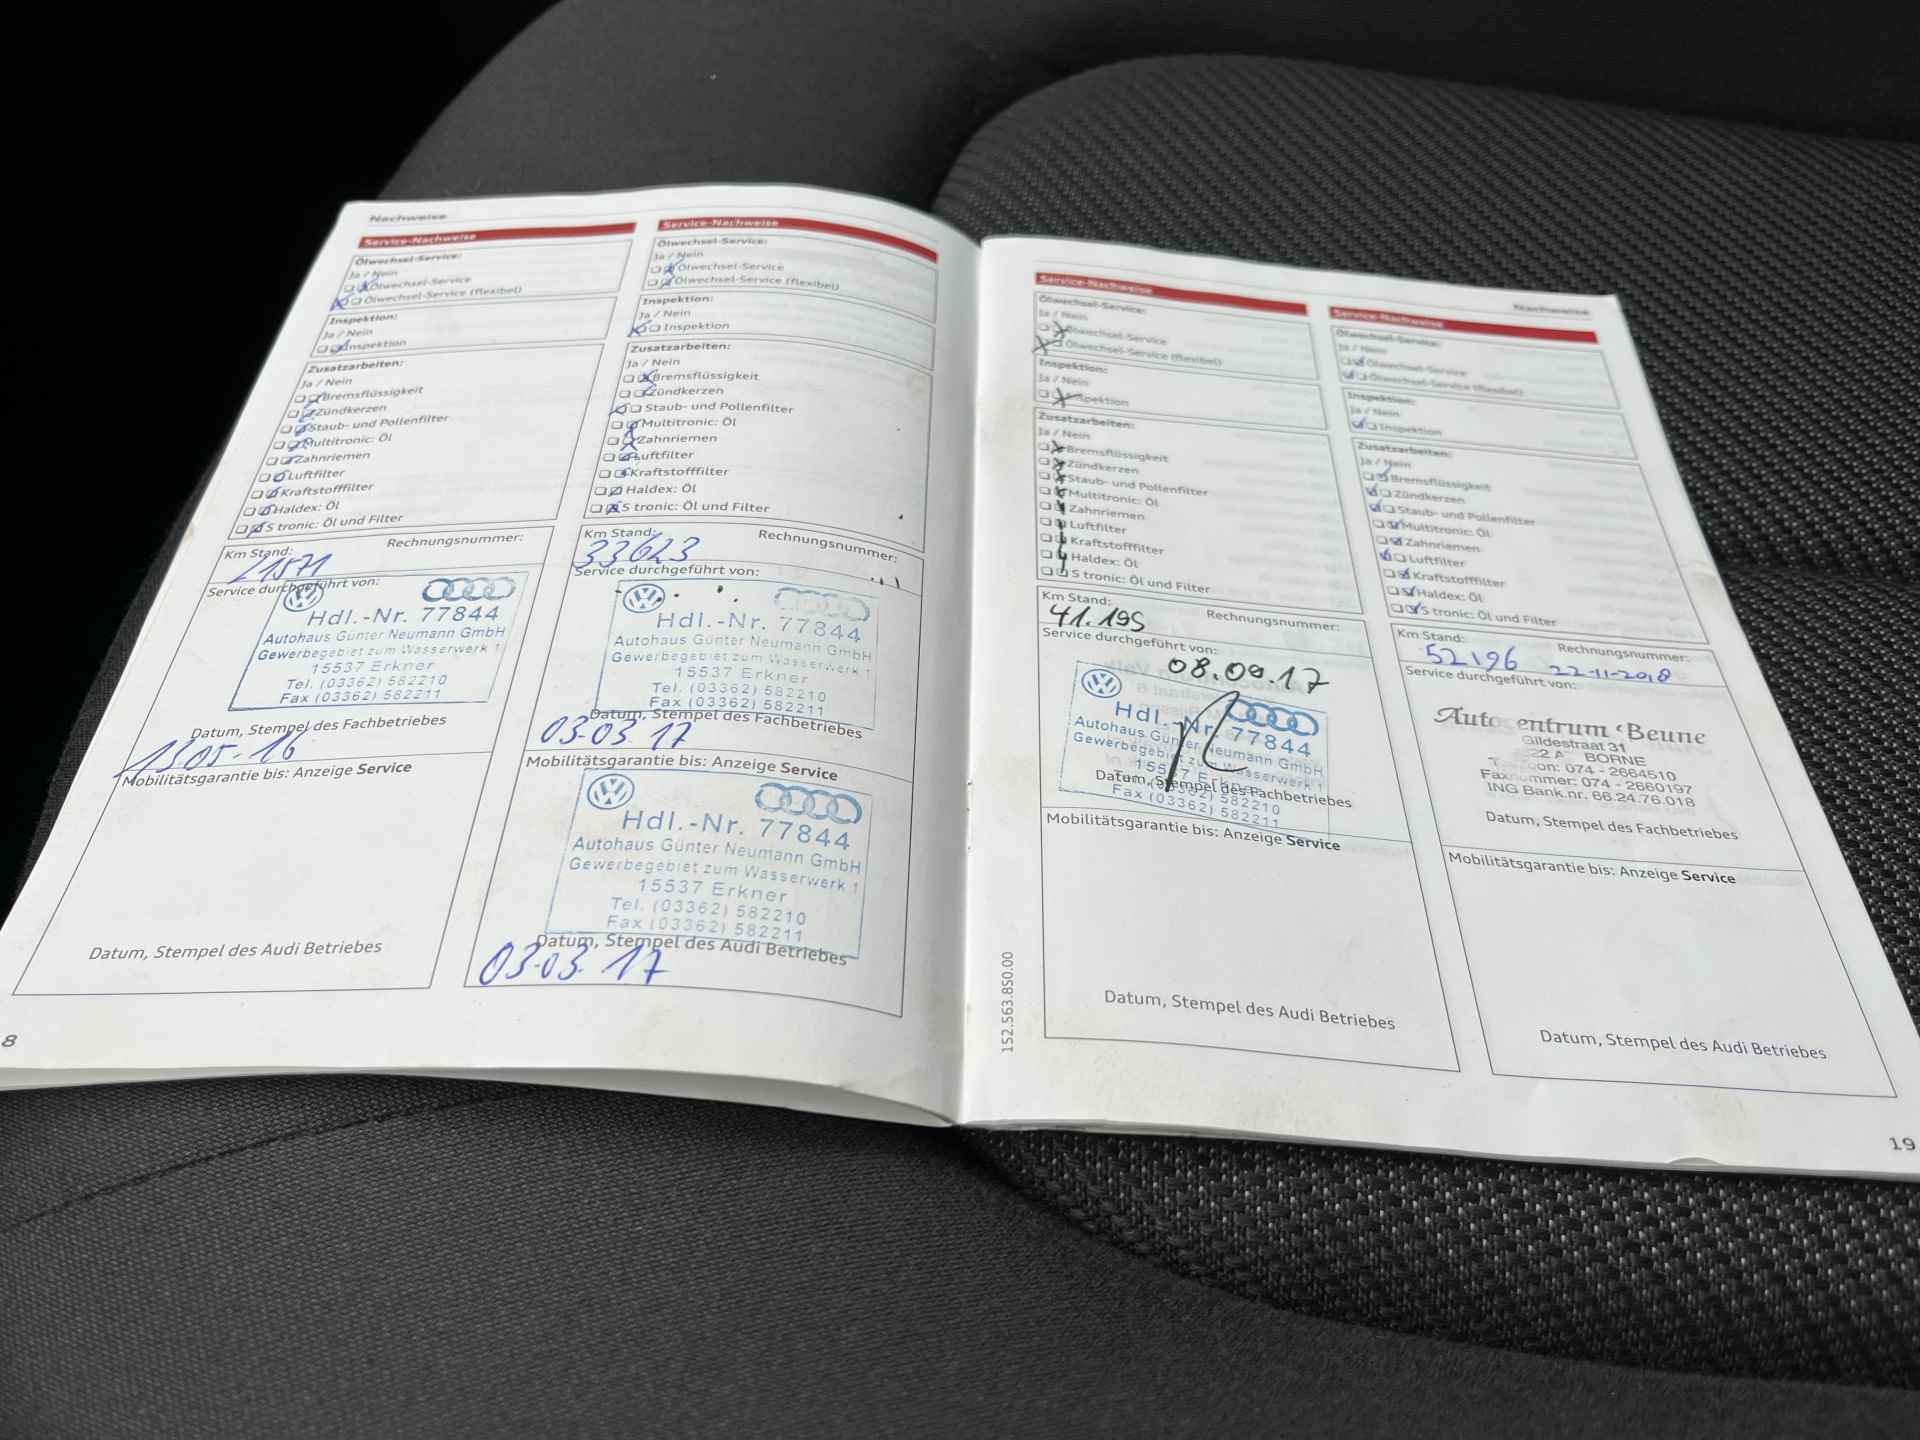 Nachweise
Service-Nachweise
Ölwechsel-Service:
Ja / Nein
Ölwechsel-Service
Ölwechsel-Service (flexibel)
Inspektion:
Ja / Nein
Inspektion
Zusatzarbeiten:
Ja / Nein
Bremsflüssigkeit
Zündkerzen
Staub- und Pollenfilter
Multitronic: Öl
Zahnriemen
Luftfilter
Kraftstofffilter
Haldex: Öl
S tronic: Öl und Filter
Km Stand:
Rechnungsnummer:
21571
Service durchgeführt von:
Hdl.-Nr. 77844
Autohaus Günter Neumann GmbH
Gewerbegebiet zum Wasserwerk 1
15537 Erkner
Tel. (03362) 582210
Fax (03362) 582211
Datum, Stempel des Fachbetriebes
13 05-16
Mobilitätsgarantie bis: Anzeige Service
Datum, Stempel des Audi Betriebes
8
Service-Nachweise
Ölwechsel-Service:
Ja / Nein
Ölwechsel-Service
Ölwechsel-Service (flexibel)
Inspektion:
Ja / Nein
Inspektion
Zusatzarbeiten:
Ja / Nein
Bremsflüssigkeit
Zündkerzen
Staub- und Pollenfilter
Multitronic: Öl
Zahnriemen
Luftfilter
Kraftstofffilter
Haldex: Öl
S tronic: Öl und Filter
Km Stand:
Rechnungsnummer:
33623
Service durchgeführt von:
Hdl.-Nr. 77844
Autohaus Günter Neumann GmbH
Gewerbegebiet zum Wasserwerk 1
15537 Erkner
Tel. (03362) 582210
Fax (03362) 582211
Datum, Stempel des Fachbetriebes
03-03 17
Mobilitätsgarantie bis: Anzeige Service
Hdl.-Nr. 77844
Autohaus Günter Neumann GmbH
Gewerbegebiet zum Wasserwerk 1
15537 Erkner
Tel. (03362) 582210
Fax (03362) 582211
Datum, Stempel des Audi Betriebes
03-03. 17
152.563.850.00
Service-Nachweise
Ölwechsel-Service:
Ja / Nein
Ölwechsel-Service
Ölwechsel-Service (flexibel)
Inspektion:
Ja / Nein
Inspektion
Zusatzarbeiten:
Ja / Nein
Bremsflüssigkeit
Zündkerzen
Staub- und Pollenfilter
Multitronic: Öl
Zahnriemen
Luftfilter
Kraftstofffilter
Haldex: Öl
S tronic: Öl und Filter
Km Stand:
Rechnungsnummer:
41.195
Service durchgeführt von:
08.09.17
Hdl.-Nr. 77844
Autohaus Günter Neumann GmbH
Gewerbegebiet zum Wasserwerk 1
15537 Erkner
Datum, Stempel des Fachbetriebes
582210
Fax (03362) 582211
Mobilitätsgarantie bis: Anzeige Service
Datum, Stempel des Audi Betriebes
Nachweise
Service-Nachweise
Ölwechsel-Service:
Ja / Nein
Ölwechsel-Service
Ölwechsel-Service (flexibel)
Inspektion:
Ja / Nein
Inspektion
Zusatzarbeiten:
Ja / Nein
Bremsflüssigkeit
Zündkerzen
Staub- und Pollenfilter
Multitronic: Öl
Zahnriemen
Luftfilter
Kraftstofffilter
Haldex: Öl
S tronic: Öl und Filter
Km Stand:
Rechnungsnummer:
52196 22-11-2018
Service durchgeführt von:
Autocentrum Beune
Gildestraat 31
BORNE
074 - 2664510
Faxnummer: 074 - 2660197
ING Bank.nr. 66.24.76.018
Datum, Stempel des Fachbetriebes
Mobilitätsgarantie bis: Anzeige Service
Datum, Stempel des Audi Betriebes
19